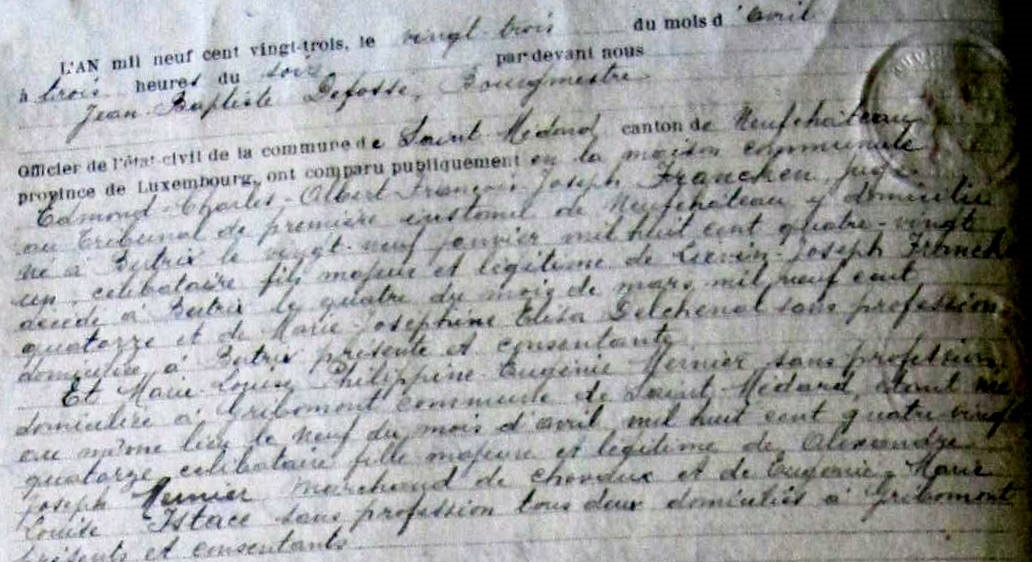 L'AN mil neuf cent vingt-trois, le vingt trois du mois d'avril
à trois heures du soir par devant nous
Jean-Baptiste Defosse, Bourgmestre
Officier de l'état-civil de la commune de Saint Médard canton de Neufchâteau
province de Luxembourg, ont comparu publiquement en la maison communale
Edmond-Charles-Albert-François-Joseph Francken, juge
au Tribunal de première instance de Neufchâteau y domicilié
né à Bertrix le vingt-neuf janvier mil huit cent quatre-vingt
un, célibataire fils majeur et légitime de Liévin-Joseph Francken
décédé à Bertrix le quatre du mois de mars mil neuf cent
quatorze et de Marie-Josephine Elisa Delchenal sans profession
domiciliée à Bertrix présente et consentante
Et Marie-Louise Philippine-Eugénie Mernier sans profession
domiciliée à Gribomont commune de Saint-Médard, étant née
au même lieu le neuf du mois d'avril mil huit cent quatre vingt
quatorze célibataire fille majeure et légitime de Alexandre
Joseph Mernier marchand de chevaux et de Eugénie-Marie
Louise Istace sans profession tous deux domiciliés à Gribomont
présents et consentants